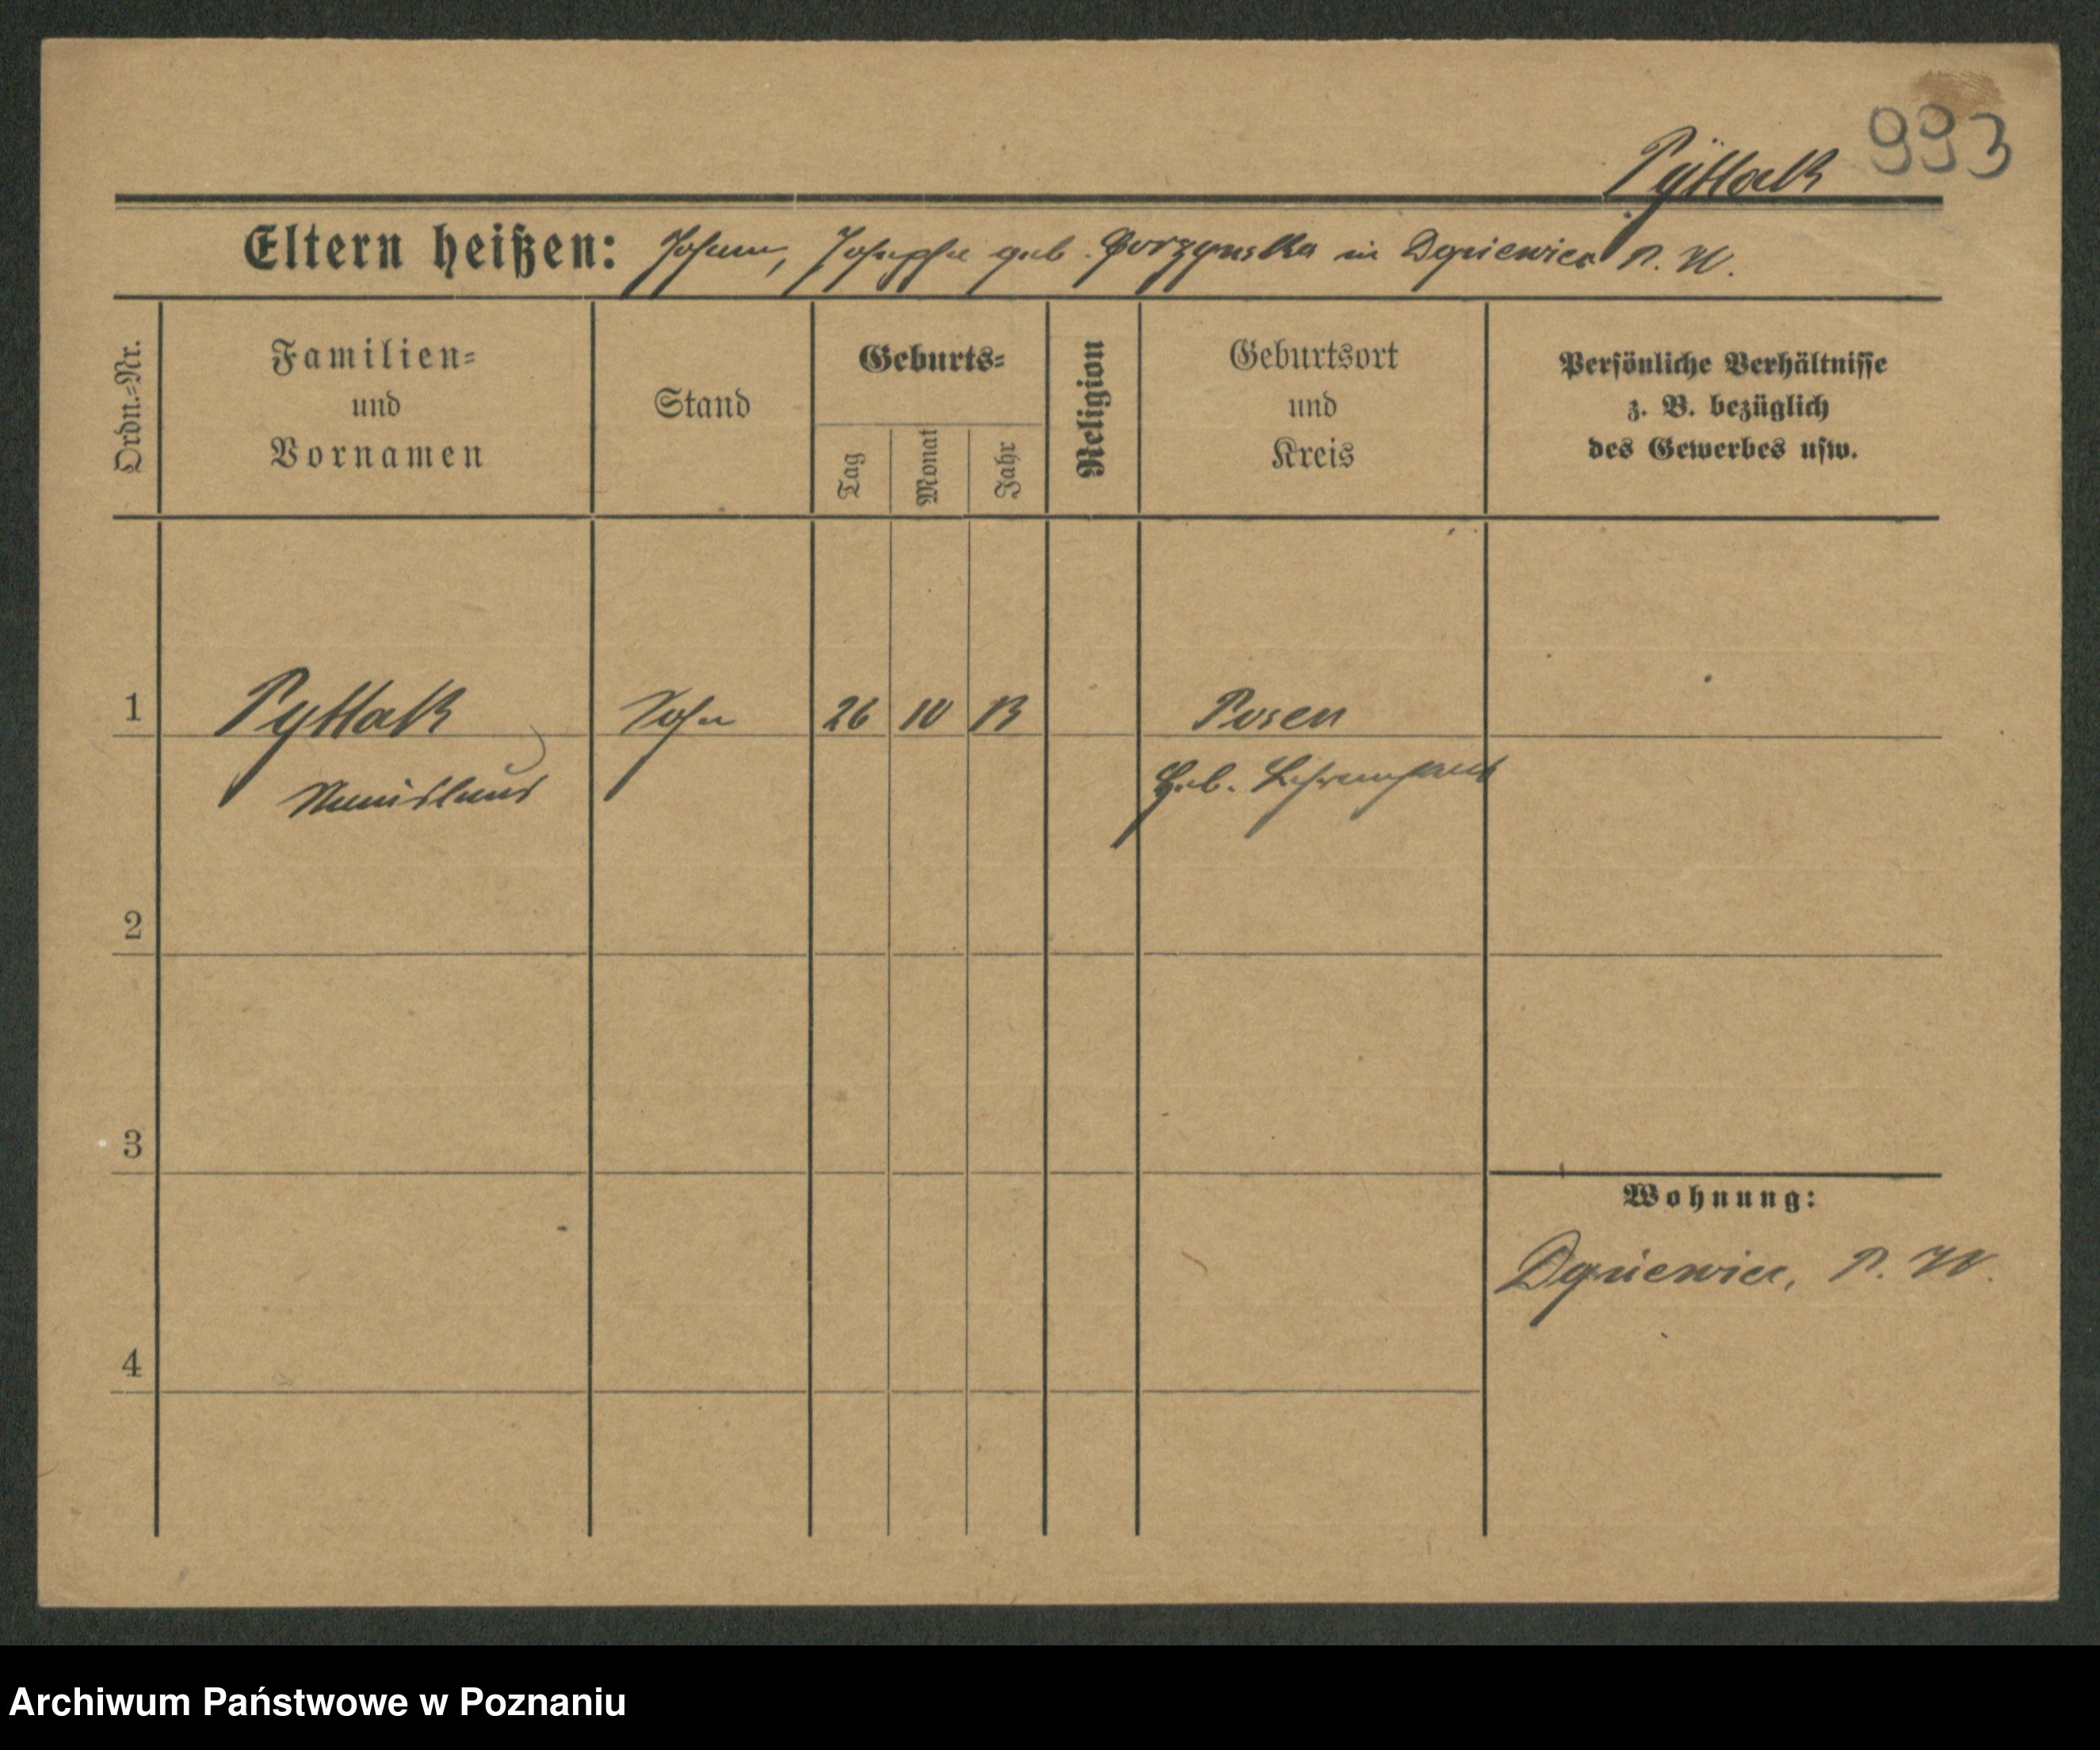 993
Pyttak
Eltern heißen: Johann, Josepha geb. Gorzynska in Dgniewice P. W.
Ordn.=Nr.
Familien=
und
Vornamen
Stand
Geburts=
Tag
Monat
Jahr
Religion
Geburtsort
und
Kreis
Persönliche Verhältnisse
z. B. bezüglich
des Gewerbes usw.
1
Pyttak
Sohn
26
10
13
Posen
Geb.
2
3
Wohnung:
P. W.
4
Archiwum Państwowe w Poznaniu